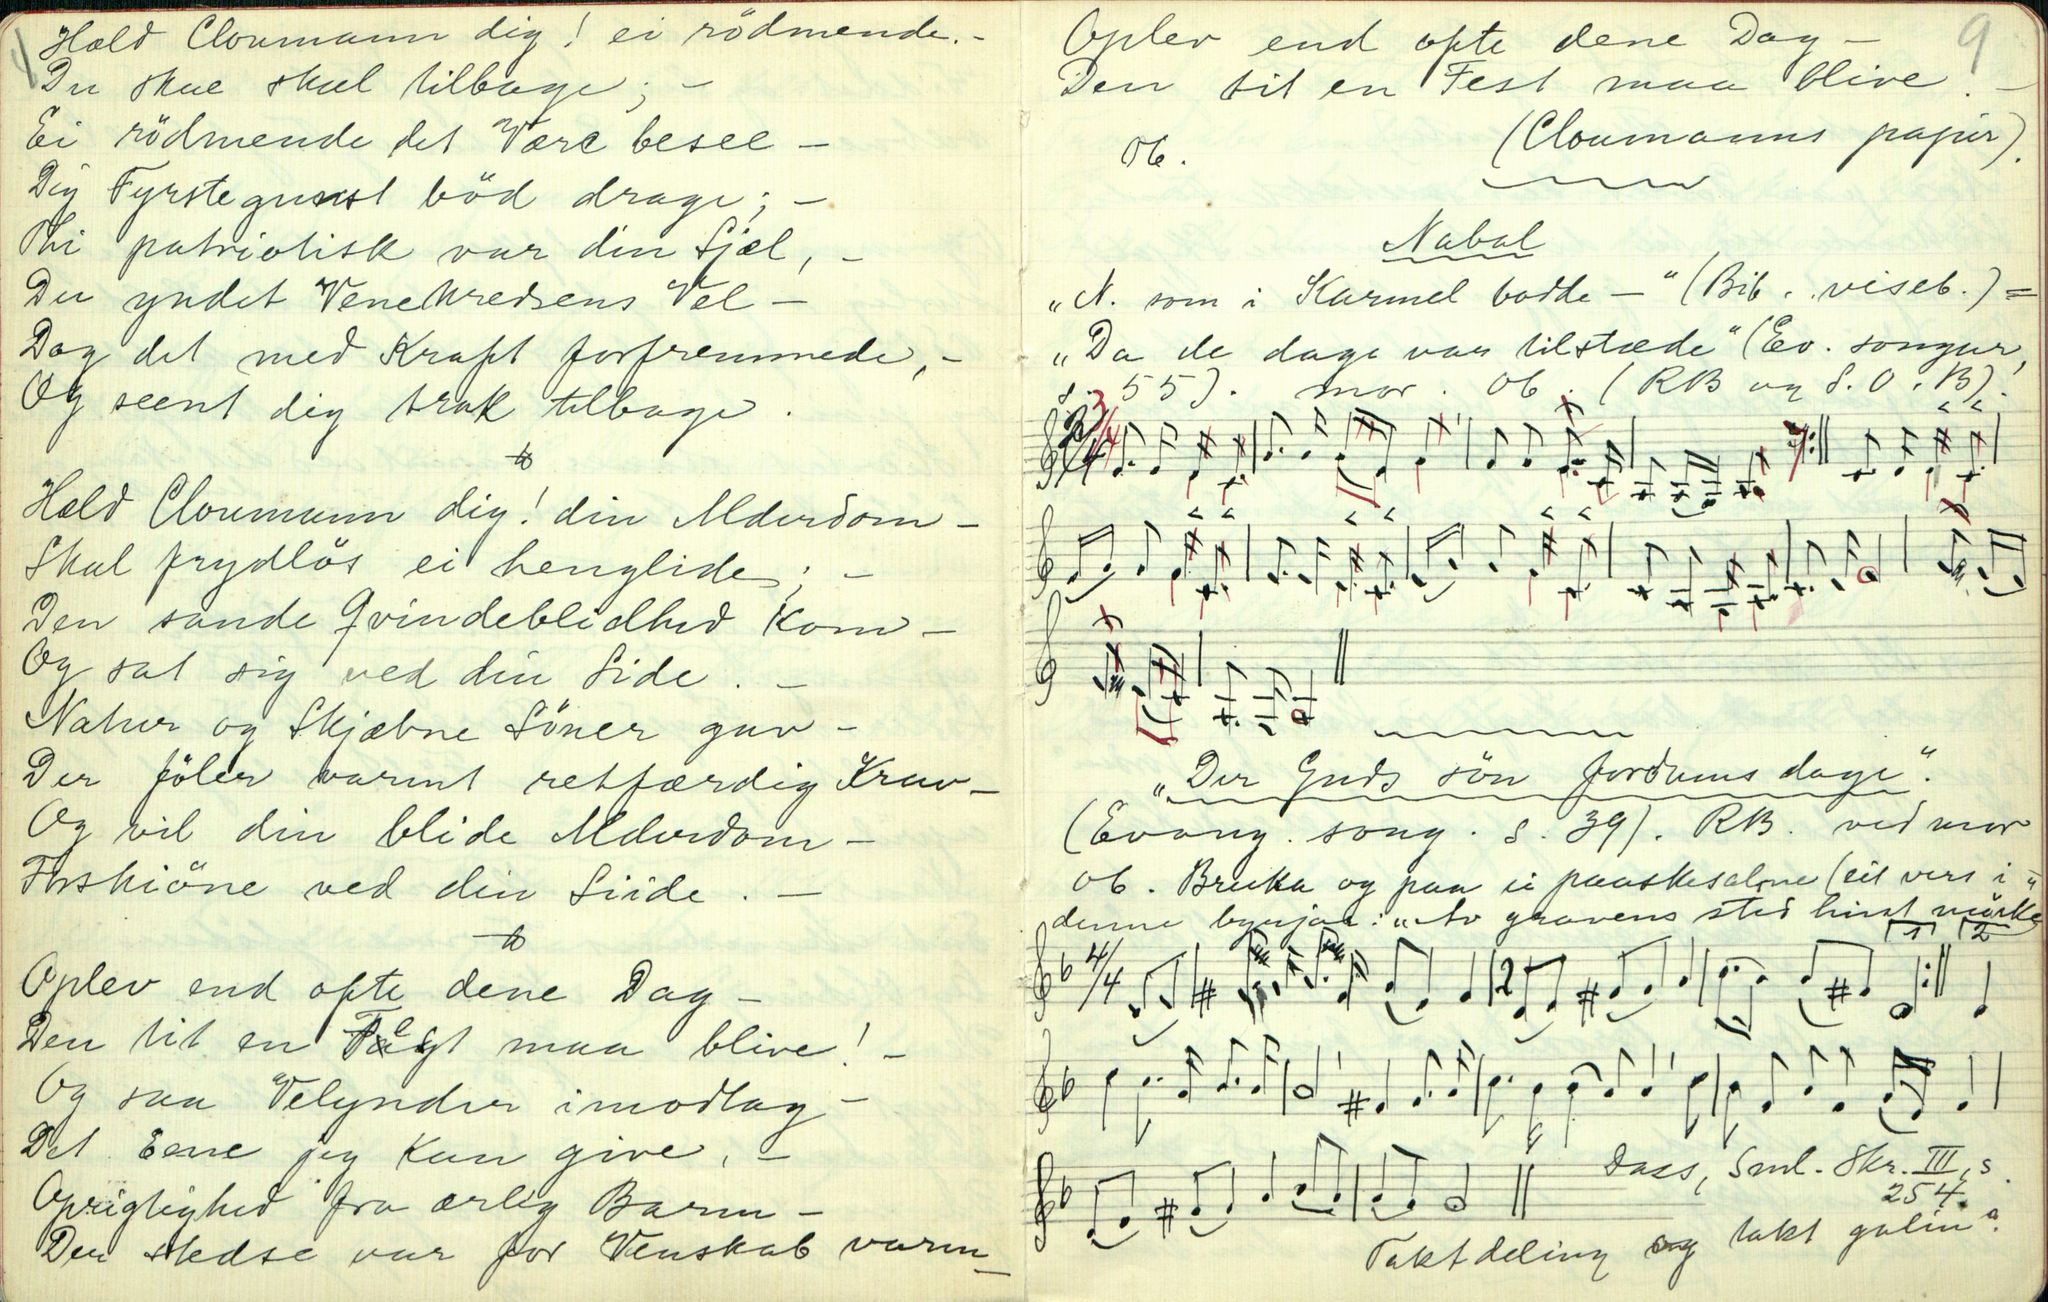 Held Cloumann dig! ei rödmende. –
Du skue skal tilbage; –
Ei rödmende det Værc besee –
Dig Fyrstegunst böd drage; –
Thi patriotisk var din Sjæl, –
Du yndet Venekredsens Vel –
Dog det med Kraft forfremmede, –
Og seent dig trak tilbage.
Held Cloumann dig! din Alderdom –
Skal frydlös ei henglide; –
Den sande Qvindeblidhed kom –
Og sat sig ved din Side. –
Natur og Skjæbne Söner gav –
Der föler varmt retfærdig Krav –
Og vil din blide Alderdom –
Forskiöne ved din Siide. –
Oplev end ofte dene Dag –
Den tit en Fest maa blive! –
Og saa Velynder imodtag –
Det Eene jeg kan give, –
Oprigtighed fra ærlig Barm –
Der stedse var for Venskab varm –
9
Oplev end ofte dene Dag –
Den tit en Fest maa blive. –
Ob. (Cloumanns papir).
Nabal
"N. som i Karmel bodde –" (Bib. viseb.) =
"Da de dage var tilstæde" (Ev. songar,
s. 55). mor. Ob. (RB og S. O. B).
3/4
"Der Guds sön fordums dage".
(Evang. song. s. 39). RB. ved mor
Ob. Bruka og paa ei paaskesalme (eit vers i
denne bynjar: "Av gravens sted hint mörke"
1 2
4/4
2
Dass, Sml. Skr. III, s.
254.
Taktdeling og takt galin?